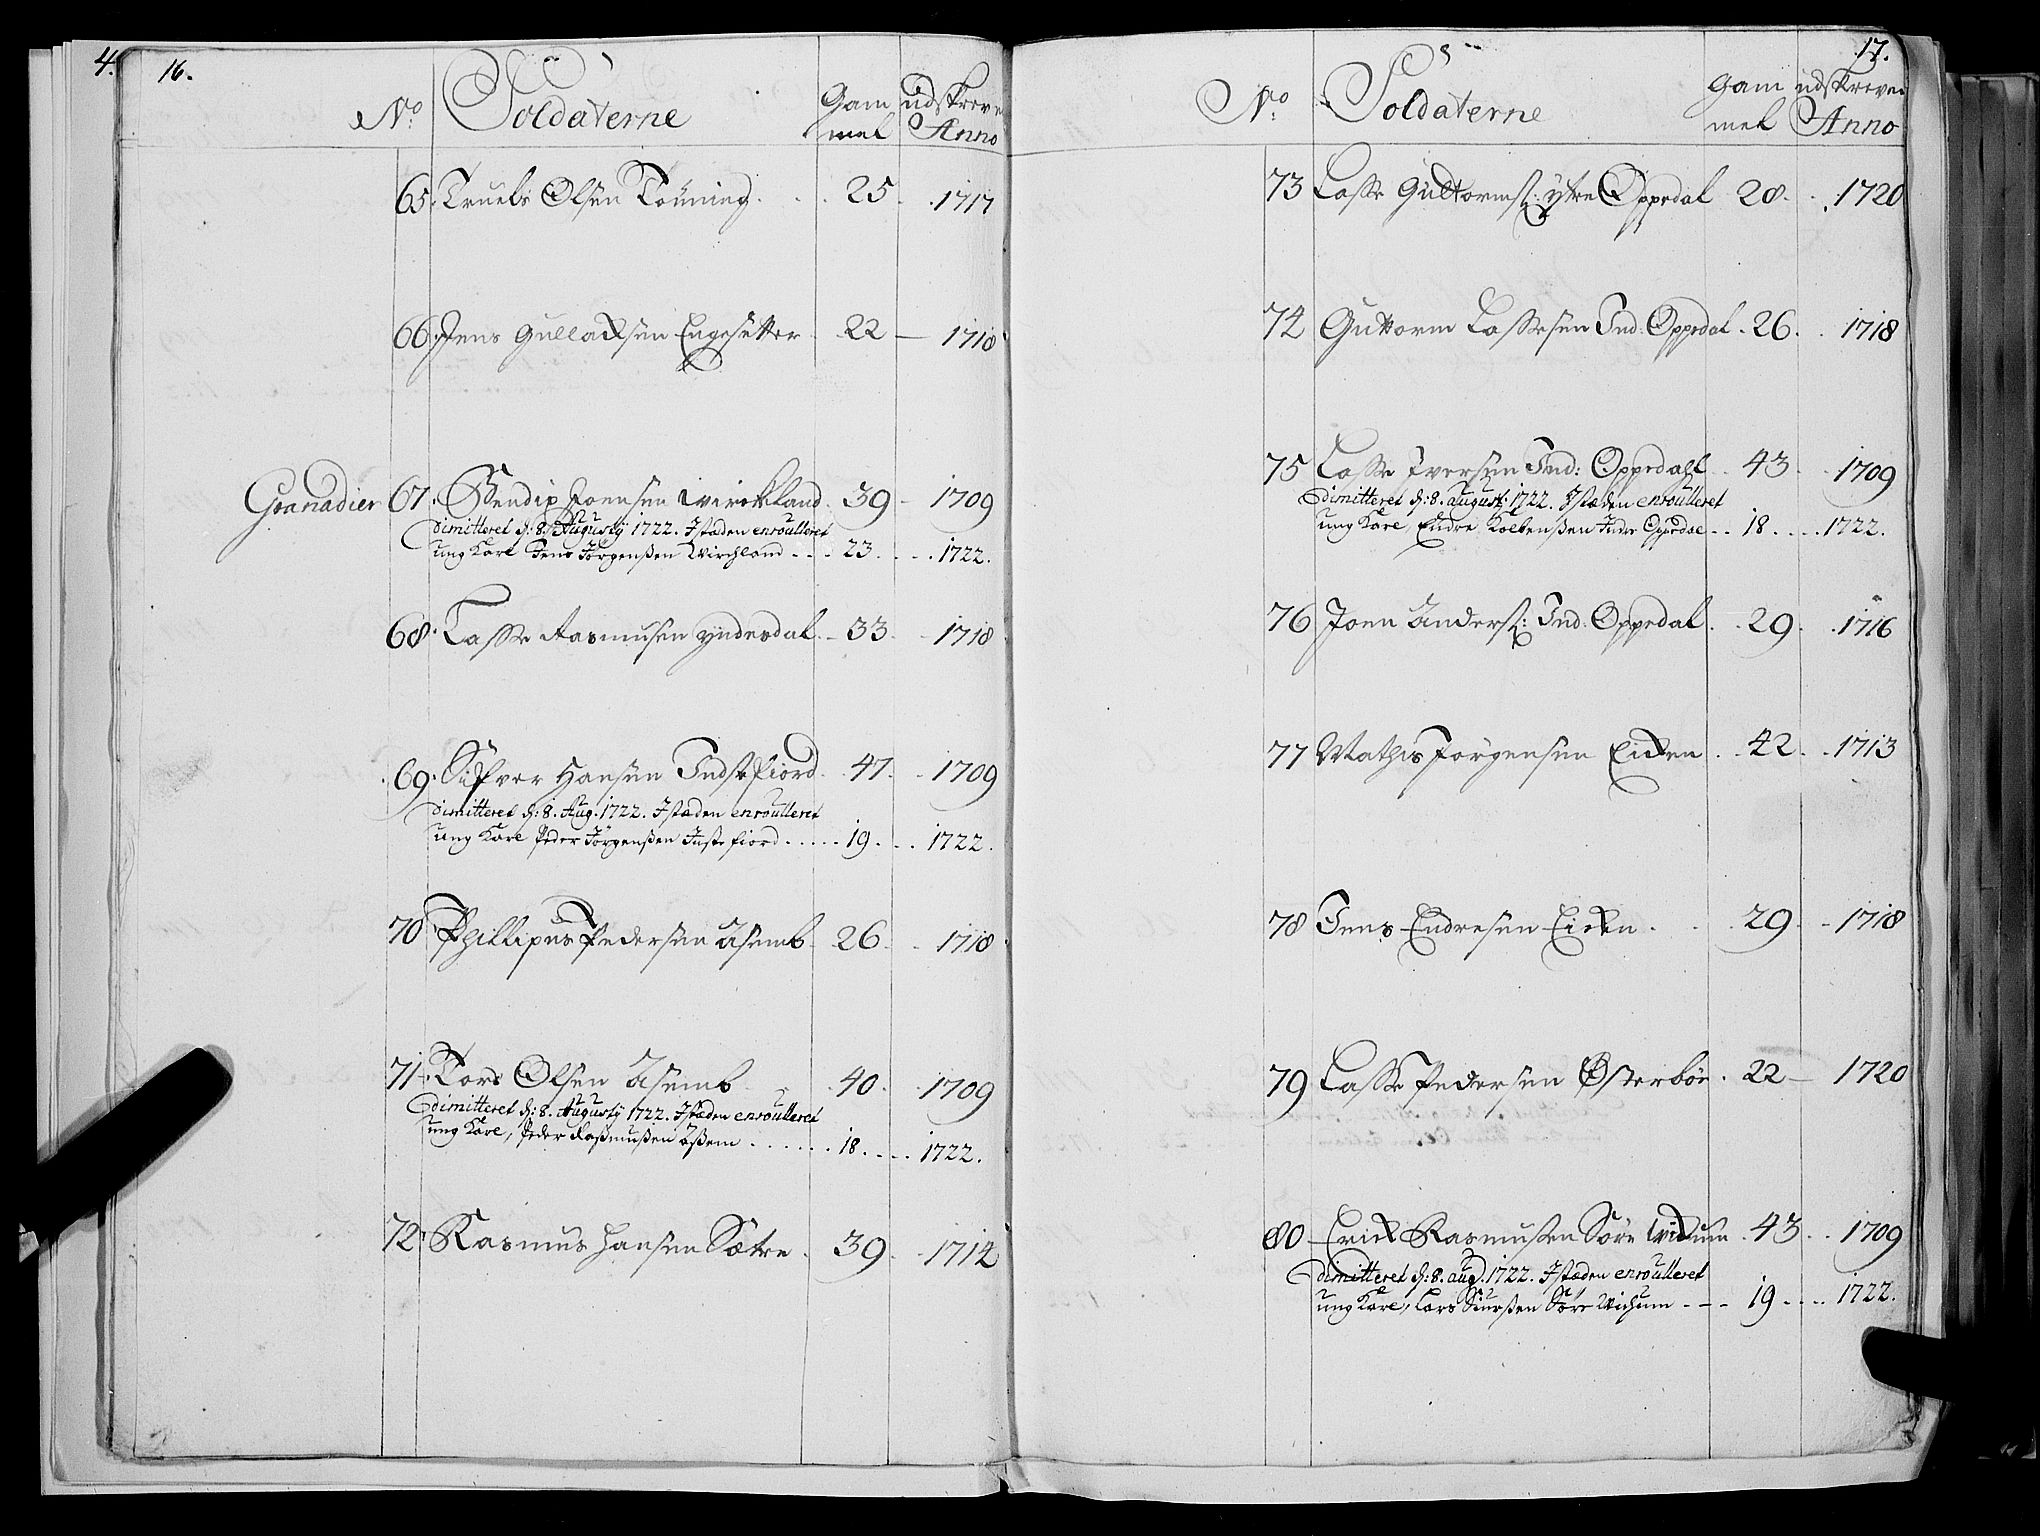 4.
16.
No Soldaterne Gam mel udskreven Anno
65. Truels Olsen Tönning 25 1717
66. Jens Gullaksen Engesetter 22 1718
Granadier 67. Bendix Joensen Wirckland 39 1709
dimitteret d: 8. Augusty 1722. Istæden enroulleret
ung Karl Jens Jörgenßen Wirchland 23 1722.
68. Lasse Rasmusen Yndesdal 33 1718
69. Sifver Hansen Indstefiord 47 1709
dimitteret d: 8. Aug. 1722. Istæden enroulleret
ung Karl Peder Jörgenßen Instefiord 19 1722.
70 Phillipus Pedersen Asemb 26 1718
71. Lars Olsen Asemb 40 1709
dimitteret d: 8. Augusty 1722. Istæden enroulleret
ung Karl, Peder Raßmußen Aßem 18 1722.
72. Rasmus Hansen Sætre 39 1714
17.
No Soldaterne Gam mel udskreven Anno
73 Lasse Guttorms: ytre Oppedal 28. 1720
74 Guttorm Lassesen Ind: Oppedal 26. 1718
75 Lasse Iversen Ind: Oppedahl 43 1709
dimitteret d: 8. augusti 1722. Istæden enroulleret
ung Karl, Endre Kolbenßen Indre Oppedal 18 1722.
76 Joen Anders: Ind: Oppedal 29. 1716
77 Mathis Jörgensen Eicken 42 1713
78 Jens Endresen Eicken 29 1718
79 Lasse Pedersen Østerböe 22 1720
80 Erick Rasmusen Söre Wickum 43 1709
dimitteret d: 8. aug. 1722. Istæden enroulleret
ung Karl, Lars Siurßen Söre Wichum 19 1722.